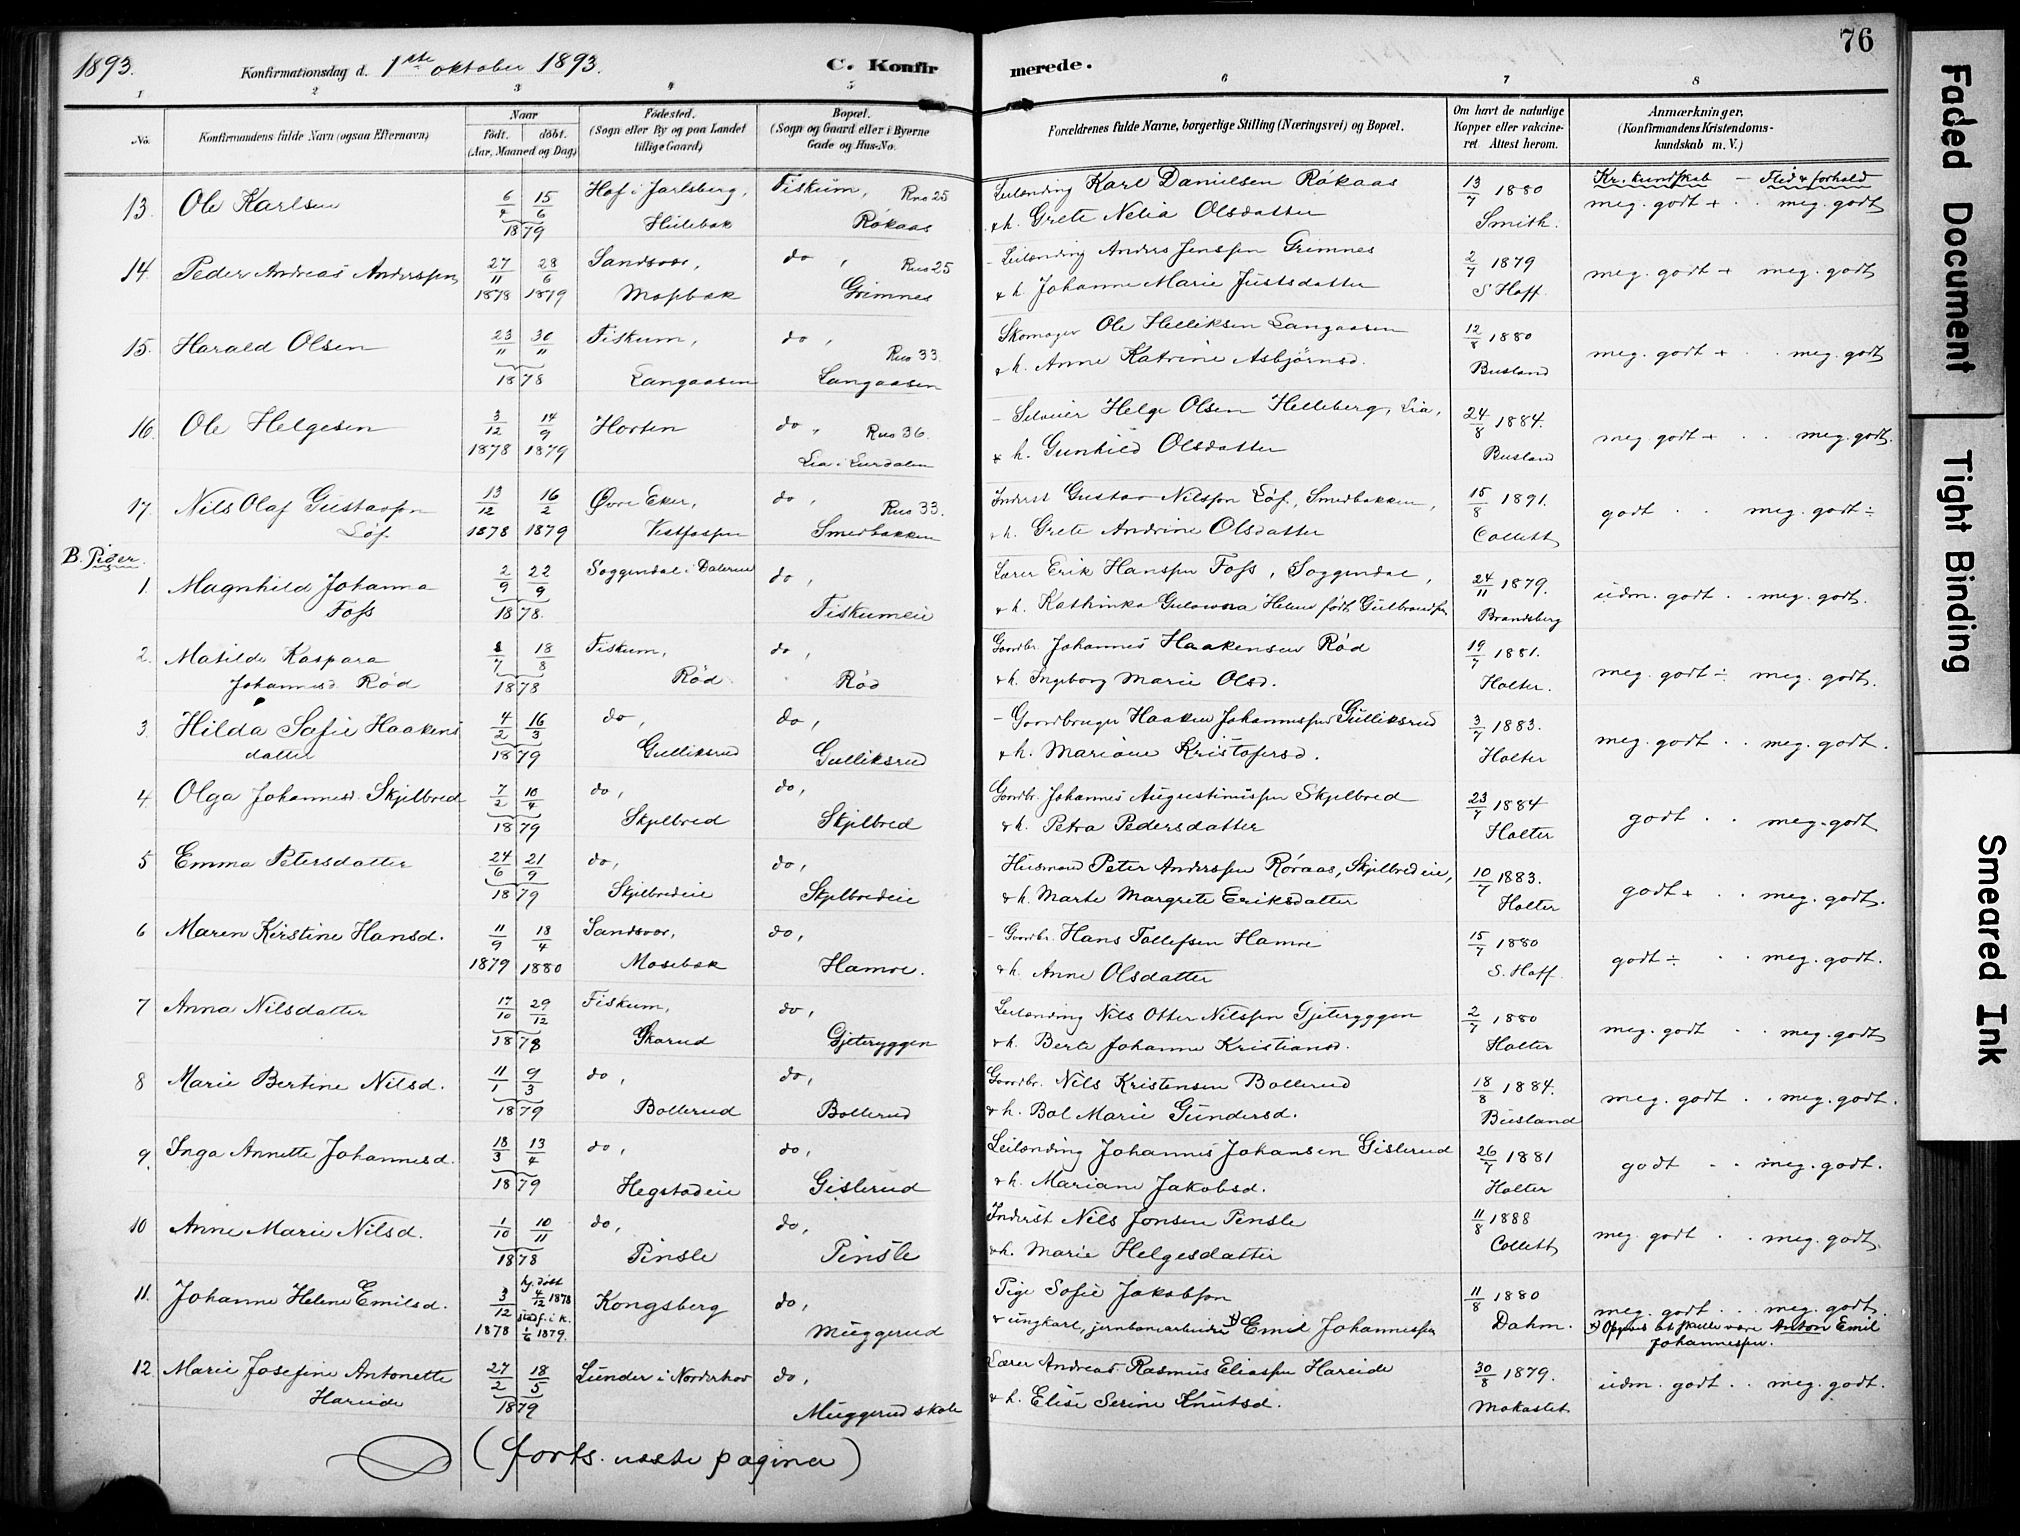 76
1893. Konfirmationsdag d. 1ste oktober 1893. C. Konfirmerede.
1 2 3 4 5 6 7 8
No. Konfirmandens fulde Navn (ogsaa Efternavn) Naar født. døbt. (Aar, Maaned og Dag) Fødested. (Sogn eller By og paa Landet tillige Gaard) Bopæl. (Sogn og Gaard eller i Byerne Gade og Hus-No. Forældrenes fulde Navne, borgerlige Stilling (Næringsvei) og Bopæl. Om havt de naturlige Kopper eller vakcineret. Attest herom. Anmærkninger. (Konfirmandens Kristendomskundskab m. V.)
Kr. kundskab — Flid & forhold
13. Ole Karlsen 6/4 15/6 1879 Hof i Jarlsberg, Hillebak Fiskum, Rno 25 Røkaas Leilending Karl Danielsen Røkaas & h. Grete Nelia Olsdatter 13/7 1880 Smith. meg. godt + . . meg. godt
14. Peder Andreas Anderssen 27/11 1878 28/6 1879 Sandsvær, Mosbak do, Rno 25 Grimnes Leilending Anders Jenssen Grimnes & h. Johanne Marie Justsdatter 2/7 1879 S Hoff. meg. godt + meg. godt
15. Harald Olsen 23/11 30/11 1878 Fiskum, Langaasen do, Rno 33. Langaasen Skomager Ole Helliksen Langaasen & h. Anne Katrine Asbjørnsd. 12/8 1880 Busland meg. godt + . . meg. godt
16. Ole Helgesen 3/12 1878 14/9 1879 Horten do, Rno 36. Lia i Lurdalen Selveier Helge Olsen Helleberg, Lia, & h. Gunhild Olsdatter 24/8 1884. Busland meg. godt + . . meg. godt.
17. Nils Olaf Gustavsen Løf. 13/12 1878 16/2 1879 Øvre Eker, Vestfossen do, Rno 33. Smedbakken Inderst Gustav Nilssen Løf, Smedbakken, & h. Grete Andrine Olsdatter 15/8 1891. Collett godt . . meg. godt ÷
B. Piger.
1. Magnhild Johanna Foss 2/9 22/9 1878. Soggendal i Dalerne do, Fiskumeie Lærer Erik Hanssen Foss, Soggendal, & h. Kathinka Gulowsra Helene født Gulbrandsen 24/11 1879. Brandsberg udm. godt . . meg. godt.
2. Matilde Kaspara Johannesd. Rød 8/7 18/8 1878 Fiskum, Rød do, Rød Gaardbr. Johannes Haakensen Rød & h. Ingeborg Marie Olsd. 19/7 1881. Holter. meg. godt ÷ meg. godt.
3. Hilda Sofie Haakensdatter 4/2 16/3 1879 do, Gulliksrud do, Gulliksrud Gaardbruger Haaken Johannessen Gulliksrud & h. Mariane Kristofersd. 3/7 1883. Holter meg. godt . . meg. godt.
4. Olga Johannesd. Skjelbred 7/2 10/4 1879 do, Skjelbred do, Skjelbred Gaardbr. Johannes Augustinussen Skjelbred & h. Petra Pedersdatter 23/7 1884 Holter godt . . meg. godt
5 Emma Petersdatter 24/6 21/9 1879 do, Skjelbredeie do, Skjelbredeie Husmand Peter Anderssen Røraas, Skjelbredeie, & h. Marte Margrete Eriksdatter 10/7 1883. Holter godt + . . meg. godt.
6 Maren Kirstine Hansd. 11/9 1879 18/4 1880 Sandsvær, Mosebak do, Hamre. Gaardbr. Hans Tollefsen Hamre & h. Anne Olsdatter 15/7 1880 S. Hoff. godt ÷ . . meg. godt.
7 Anna Nilsdatter 17/10 29/12 1878 Fiskum, Skarud do, Gjeteryggen Leilending Nils Otter Nilssen Gjeteryggen & h. Berte Johanne Kristiansd. 2/7 1880 Holter meg. godt . . meg. godt
8 Marie Bertine Nilsd. 11/1 9/3 1879 do, Bollerud do, Bollerud Gaardbr. Nils Kristensen Bollerud & h. Bol Marie Gundersd. 18/8 1884. Busland meg. godt . . meg. godt.
9. Inga Annette Johannesd. 18/3 13/4 1879 do, Hegstadeie do, Gislerud Leilending Johannes Johansen Gislerud & h. Mariane Jakobsd. 26/7 1881 Holter godt . . meg. godt.
10 Anne Marie Nilsd. 1/10 10/11 1878 do, Pinsle do, Pinsle Inderst Nils Jonsen Pensle & h. Marie Helgesdatter 11/8 1888 Collett meg. godt . . meg. godt.
11. Johanne Helene Emilsd. 3/12 1878 hj. døbt 4/12 1878 stadf. i k. 1/6 1879. Kongsberg do, Muggerud Pige Sofie Jakobsen & ungkarl, jernbanearbeider x) Emil Johannessen 11/8 1880 Dahm. meg. godt . . meg. godt. x) Opgives at skulle være Anton Emil Johannessen.
12. Marie Josefine Antonette Hareide 27/2 18/5 1879 Lunder i Norderhov do, Muggerud skole Lærer Andreas Rasmus Eliassen Hareide & h. Elise Serine Knutsd. 30/8 1879. Makastet udm. godt . . meg. godt.
(forts. næste pagina)
Faded Document
Tight Binding
Smeared Ink